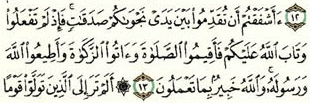 ١٢ ءَأَشْفَقْتُمْ أَن تُقَدِّمُوا۟ بَيْنَ يَدَىْ نَجْوَىٰكُمْ صَدَقَٰتٍ ۚ فَإِذْ لَمْ تَفْعَلُوا۟
وَتَابَ ٱللَّهُ عَلَيْكُمْ فَأَقِيمُوا۟ ٱلصَّلَوٰةَ وَءَاتُوا۟ ٱلزَّكَوٰةَ وَأَطِيعُوا۟ ٱللَّهَ
وَرَسُولَهُۥ ۚ وَٱللَّهُ خَبِيرٌۢ بِمَا تَعْمَلُونَ ١٣ ۞ أَلَمْ تَرَ إِلَى ٱلَّذِينَ تَوَلَّوْا۟ قَوْمًا